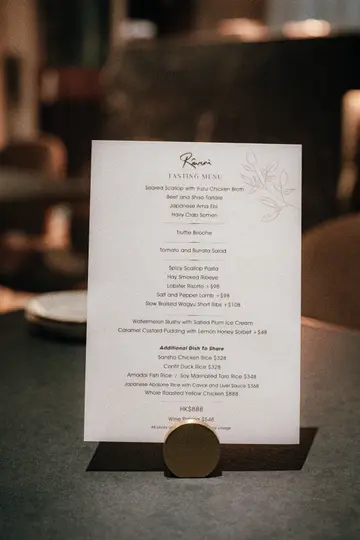 TASTING MENU
Seared Scallop with Yuzu Chicken Broth
Beef and Shiso Tartare
Japanese Ama Ebi
Hairy Crab Somen
Truffle Brioche
Tomato and Burrata Salad
Spicy Scallop Pasta
Hay Smoked Ribeye
Lobster Risotto +$98
Salt and Pepper Lamb +$98
Slow Braised Wagyu Short Ribs +$108
Watermelon Slushy with Salted Plum Ice Cream
Caramel Custard Pudding with Lemon Honey Sorbet +$48
Additional Dish To Share
Sansho Chicken Rice $328
Confit Duck Rice $328
Amadai Fish Rice / Soy Marinated Toro Rice $348
Japanese Abalone Rice with Caviar and Liver Sauce $368
Whole Roasted Yellow Chicken $888
HK$888
Wine $548